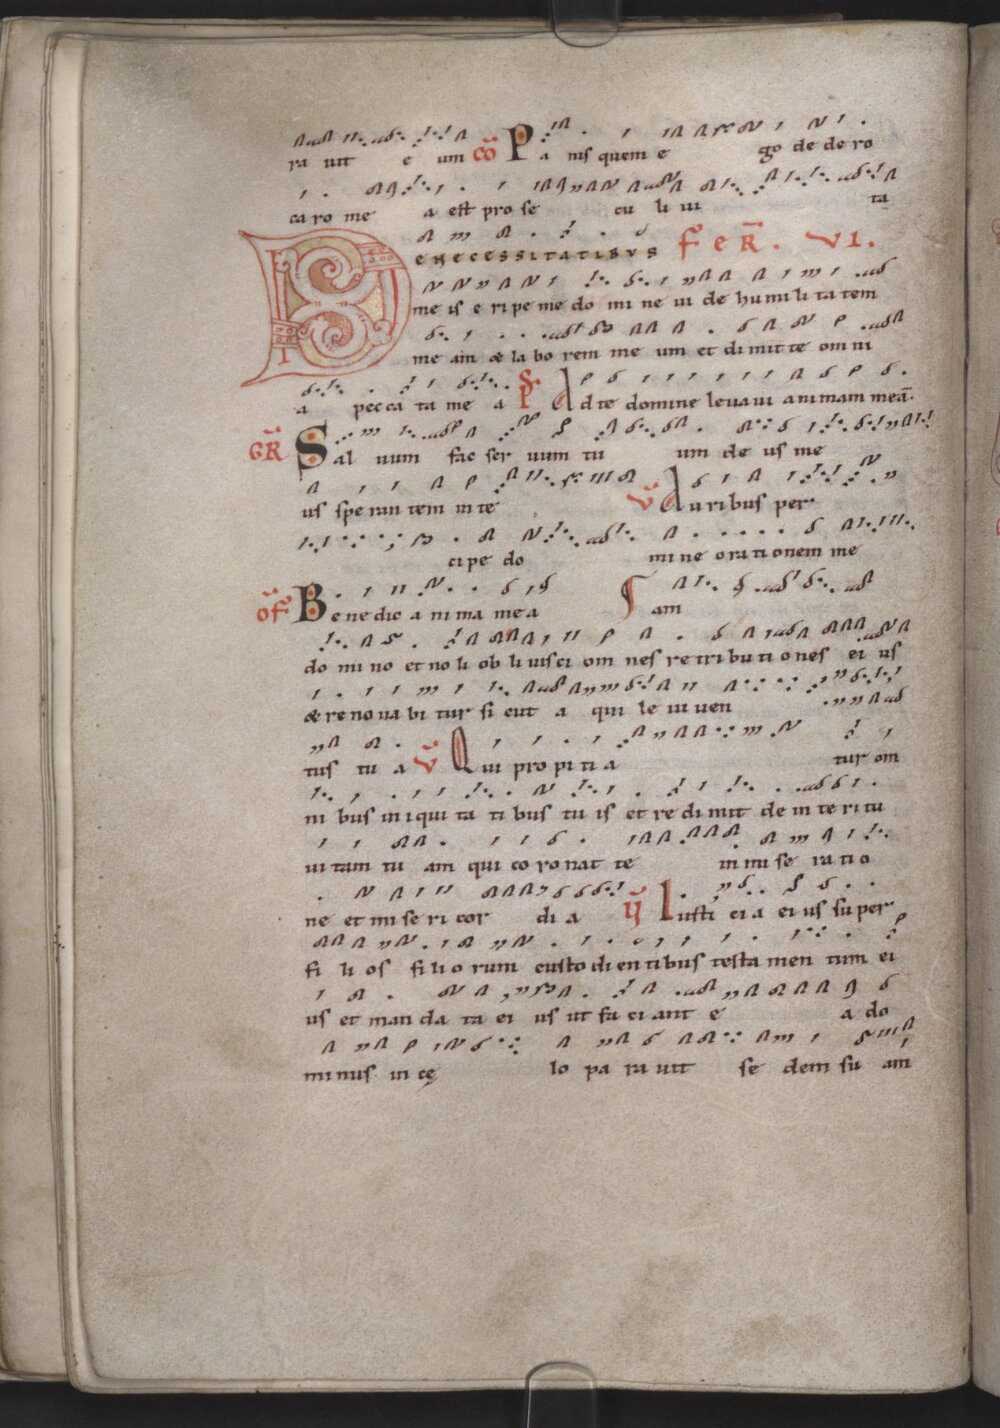 ra uit e um cō P a nis quem e go de de ro
ca ro me a est pro se cu li ui ta
D e necessitatibvs fer̄. vi.
me is e ri pe me do mi ne ui de hu mi li ta tem
me am & la bo rem me um et di mit te om ni
a pec ca ta me a ps Ad te domine levavi animam meā.
GR̄ Sal uum fac ser uum tu um de us me
us spe ran tem in te v̄ Auribus per
cipe do mi ne o ra ti onem me
of̄ Be ne dic a ni ma me a am
do mi no et no li ob li uisci om nes re tri bu ti o nes ei us
& re no ua bi tur si cut a qui le iu uen
tus tu a v̄ Qui pro pi ti a tur om
ni bus in i qui ta ti bus tu is et re di mit de in te ri tu
ui tam tu am qui co ro nat te in mi se ra ti o
ne et mi se ri cor di a v̄ Iusti ci a ei us su per
fi li os fi li o rum custo di en ti bus testa men tum ei
us et man da ta ei us ut fa ci ant e a do
mi nus in cę lo pa ra uit se dem su am